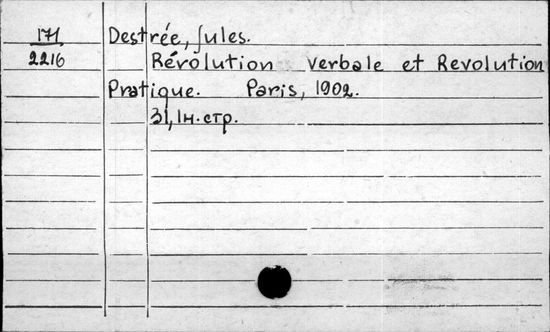 171 Destrée, Jules.
2216 Révolution verbale et Revolution
Pratique. Paris, 1902.
31, 1н. стр.